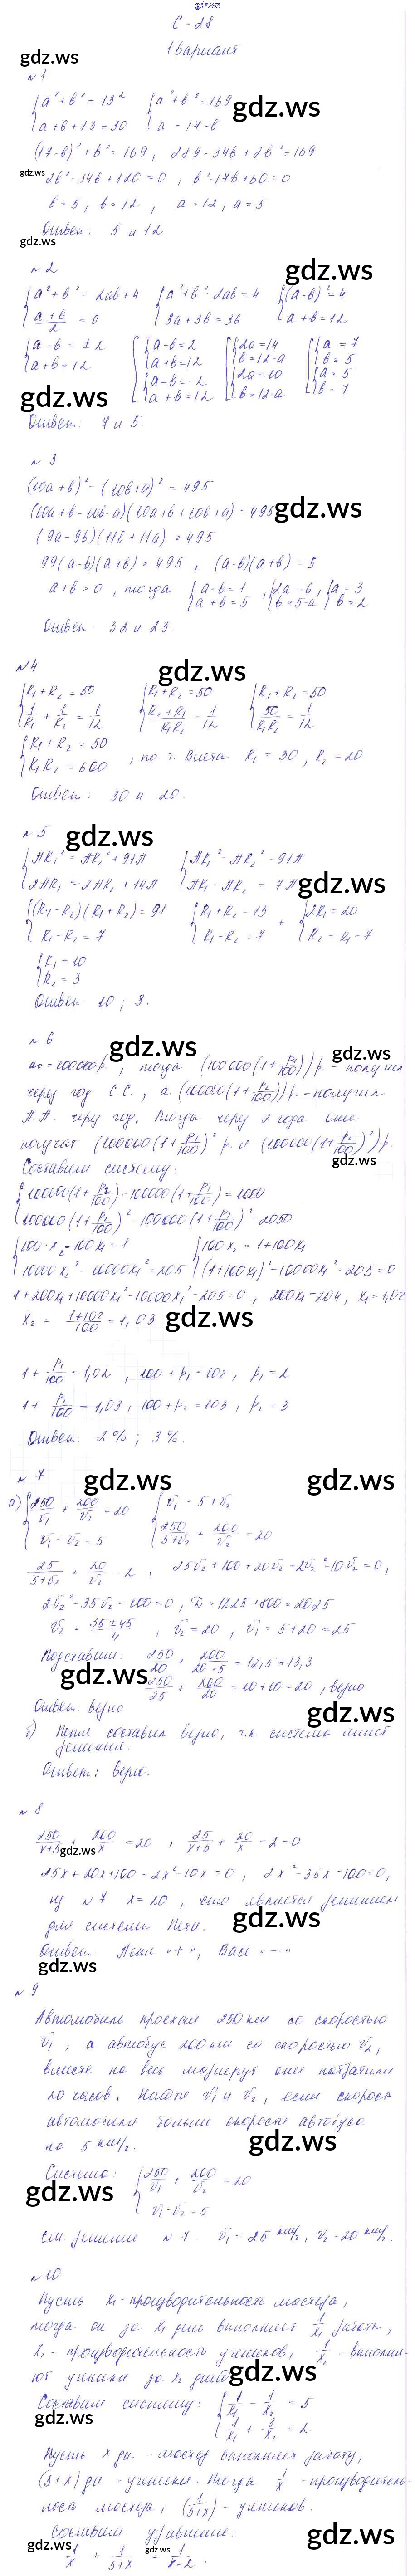 gdz.ws
С-28
1 вариант
gdz.ws
№1
{a²+b²=13² {a²+b²=169
a+b+13=30 a=17-b
gdz.ws
(17-b)²+b²=169, 289-34b+2b²=169
gdz.ws 2b²-34b+120=0, b²-17b+60=0
b=5, b=12, a=12, a=5
Ответ: 5 и 12
gdz.ws
№2
gdz.ws
{a²+b²=2ab+4 {a²+b²-2ab=4 {(a-b)²=4
(a+b)/2=6 3a+3b=36 a+b=12
{a-b=±2 {a-b=2 {2a=14 {a=7
a+b=12 a+b=12 b=12-a b=5
{a-b=-2 {2a=10 {a=5
a+b=12 b=12-a b=7
gdz.ws
Ответ: 7 и 5.
№3
(10a+b)²-(10b+a)²=495
(10a+b-10b-a)(10a+b+10b+a)=495
gdz.ws
(9a-9b)(11b+11a)=495
99(a-b)(a+b)=495, (a-b)(a+b)=5
a+b>0, тогда {a-b=1 {2a=6, {a=3
a+b=5, b=5-a b=2
Ответ: 32 и 23.
№4
gdz.ws
{R₁+R₂=50 {R₁+R₂=50 {R₁+R₂=50
1/R₁+1/R₂=1/12 (R₂+R₁)/R₁R₂=1/12 50/R₁R₂=1/12
{R₁+R₂=50
R₁R₂=600, по т. Виета R₁=30, R₂=20
Ответ: 30 и 20.
№5
gdz.ws
{πR₁²=πR₂²+91π {πR₁²-πR₂²=91π
2πR₁=2πR₂+14π πR₁-πR₂=7π
gdz.ws
{(R₁-R₂)(R₁+R₂)=91 {R₁+R₂=13 + {2R₁=20
R₁-R₂=7 R₁-R₂=7 R₂=R₁-7
{R₁=10
R₂=3
Ответ: 10; 3.
№6
gdz.ws
gdz.ws
тогда (100000(1+p₁/100))р - получил
через год С.С., а (100000(1+p₂/100))р.-получил
П.П. через год. Тогда через 2 года они
получат (100000(1+p₁/100)² р. и (100000(1+p₂/100)²)р.
gdz.ws
Составим систему:
{100000(1+p₂/100)-100000(1+p₁/100)=1000
100000(1+p₂/100)²-100000(1+p₁/100)²=2050
{100·x₂-100x₁=1 {100x₂=1+100x₁
10000x₂²-10000x₁²=205 (1+100x₁)²-10000x₁²-205=0
1+200x₁+10000x₁²-10000x₁²-205=0, 200x₁=204, x₁=1,02
x₂=(1+102)/100=1,03
gdz.ws
1+p₁/100=1,02, 100+p₁=102, p₁=2
1+p₂/100=1,03, 100+p₂=103, p₂=3
Ответ: 2%; 3%.
№7
gdz.ws
gdz.ws
а) {250/v₁+200/v₂=20 {v₁=5+v₂
v₁-v₂=5 250/(5+v₂)+200/v₂=20
25/(5+v₂)+20/v₂=2, 25v₂+100+20v₂-2v₂²-10v₂=0,
2v₂²-35v₂-100=0, D=1225+800=2025
v₂=(35±45)/4, v₂=20, v₁=5+20=25
Подставим: 250/20+200/(20-5)=12,5+13,3
gdz.ws
250/25+200/20=10+10=20, верно
Ответ: верно
gdz.ws
б) Петя составил верно, т.к. система имеет
решения.
Ответ: верно.
№8
250/(x+5)+200/x=20, 25/(x+5)+20/x-2=0
gdz.ws
25x+20x+100-2x²-10x=0, 2x²-35x-100=0,
из №7 x=20, это является решением
для системы Пети.
gdz.ws
Ответ: Петя "+", Вася "-"
gdz.ws
№9
Автомобиль проехал 250 км со скоростью
v₁, а автобус 200 км со скоростью v₂,
вместе на весь маршрут они потратили
20 часов. Найди v₁ и v₂, если скорость
автомобиля больше скорости автобуса
на 5 км/ч.
gdz.ws
Система: {250/v₁+200/v₂=20
v₁-v₂=5
gdz.ws
см. решение №7. v₁=25 км/ч, v₂=20 км/ч.
№10
Пусть x₁-производительность мастера,
тогда он за x₁ день выполняет 1/x₁ работы,
x₂-производительность учеников, 1/x₂-выполня-
ют ученики за x₂ дней.
gdz.ws
Составим систему: {1/x₁-1/x₂=5
1/x₁+3/x₂=2
gdz.ws
Пусть x дн.-мастер выполняет работу,
(5+x) дн.-ученики. Тогда 1/x-производитель-
ность мастера, (1/(5+x))-учеников.
Составим уравнение:
gdz.ws
gdz.ws
1/x+1/(5+x)=1/(x-2).
gdz.ws